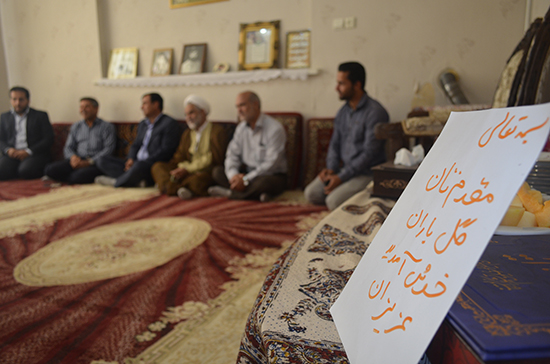 بسمه تعالی
مقدمتان
گل باران
خوش آمدید
عزیزان